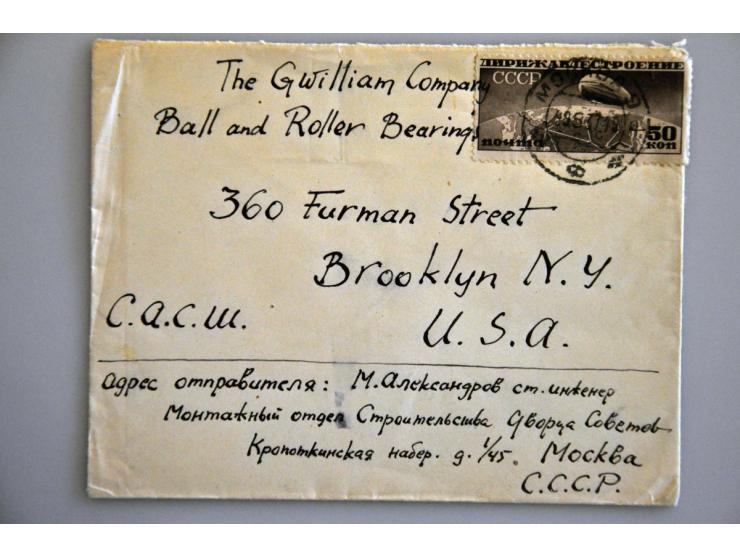 The Gwilliam Company
Ball and Roller Bearings
ДИРИЖАБЛЕСТРОЕНИЕ
СССР
МОСКВА 9
ПОЧТА
50
КОП
360 Furman Street
Brooklyn N.Y.
С.а.С.Ш.
U.S.A.
адрес отправителя: М.Александров ст. инженер
Монтажный отдел Строительства Дворца Советов
Кропоткинская набер. д. 1/45. Москва
С.С.С.Р.